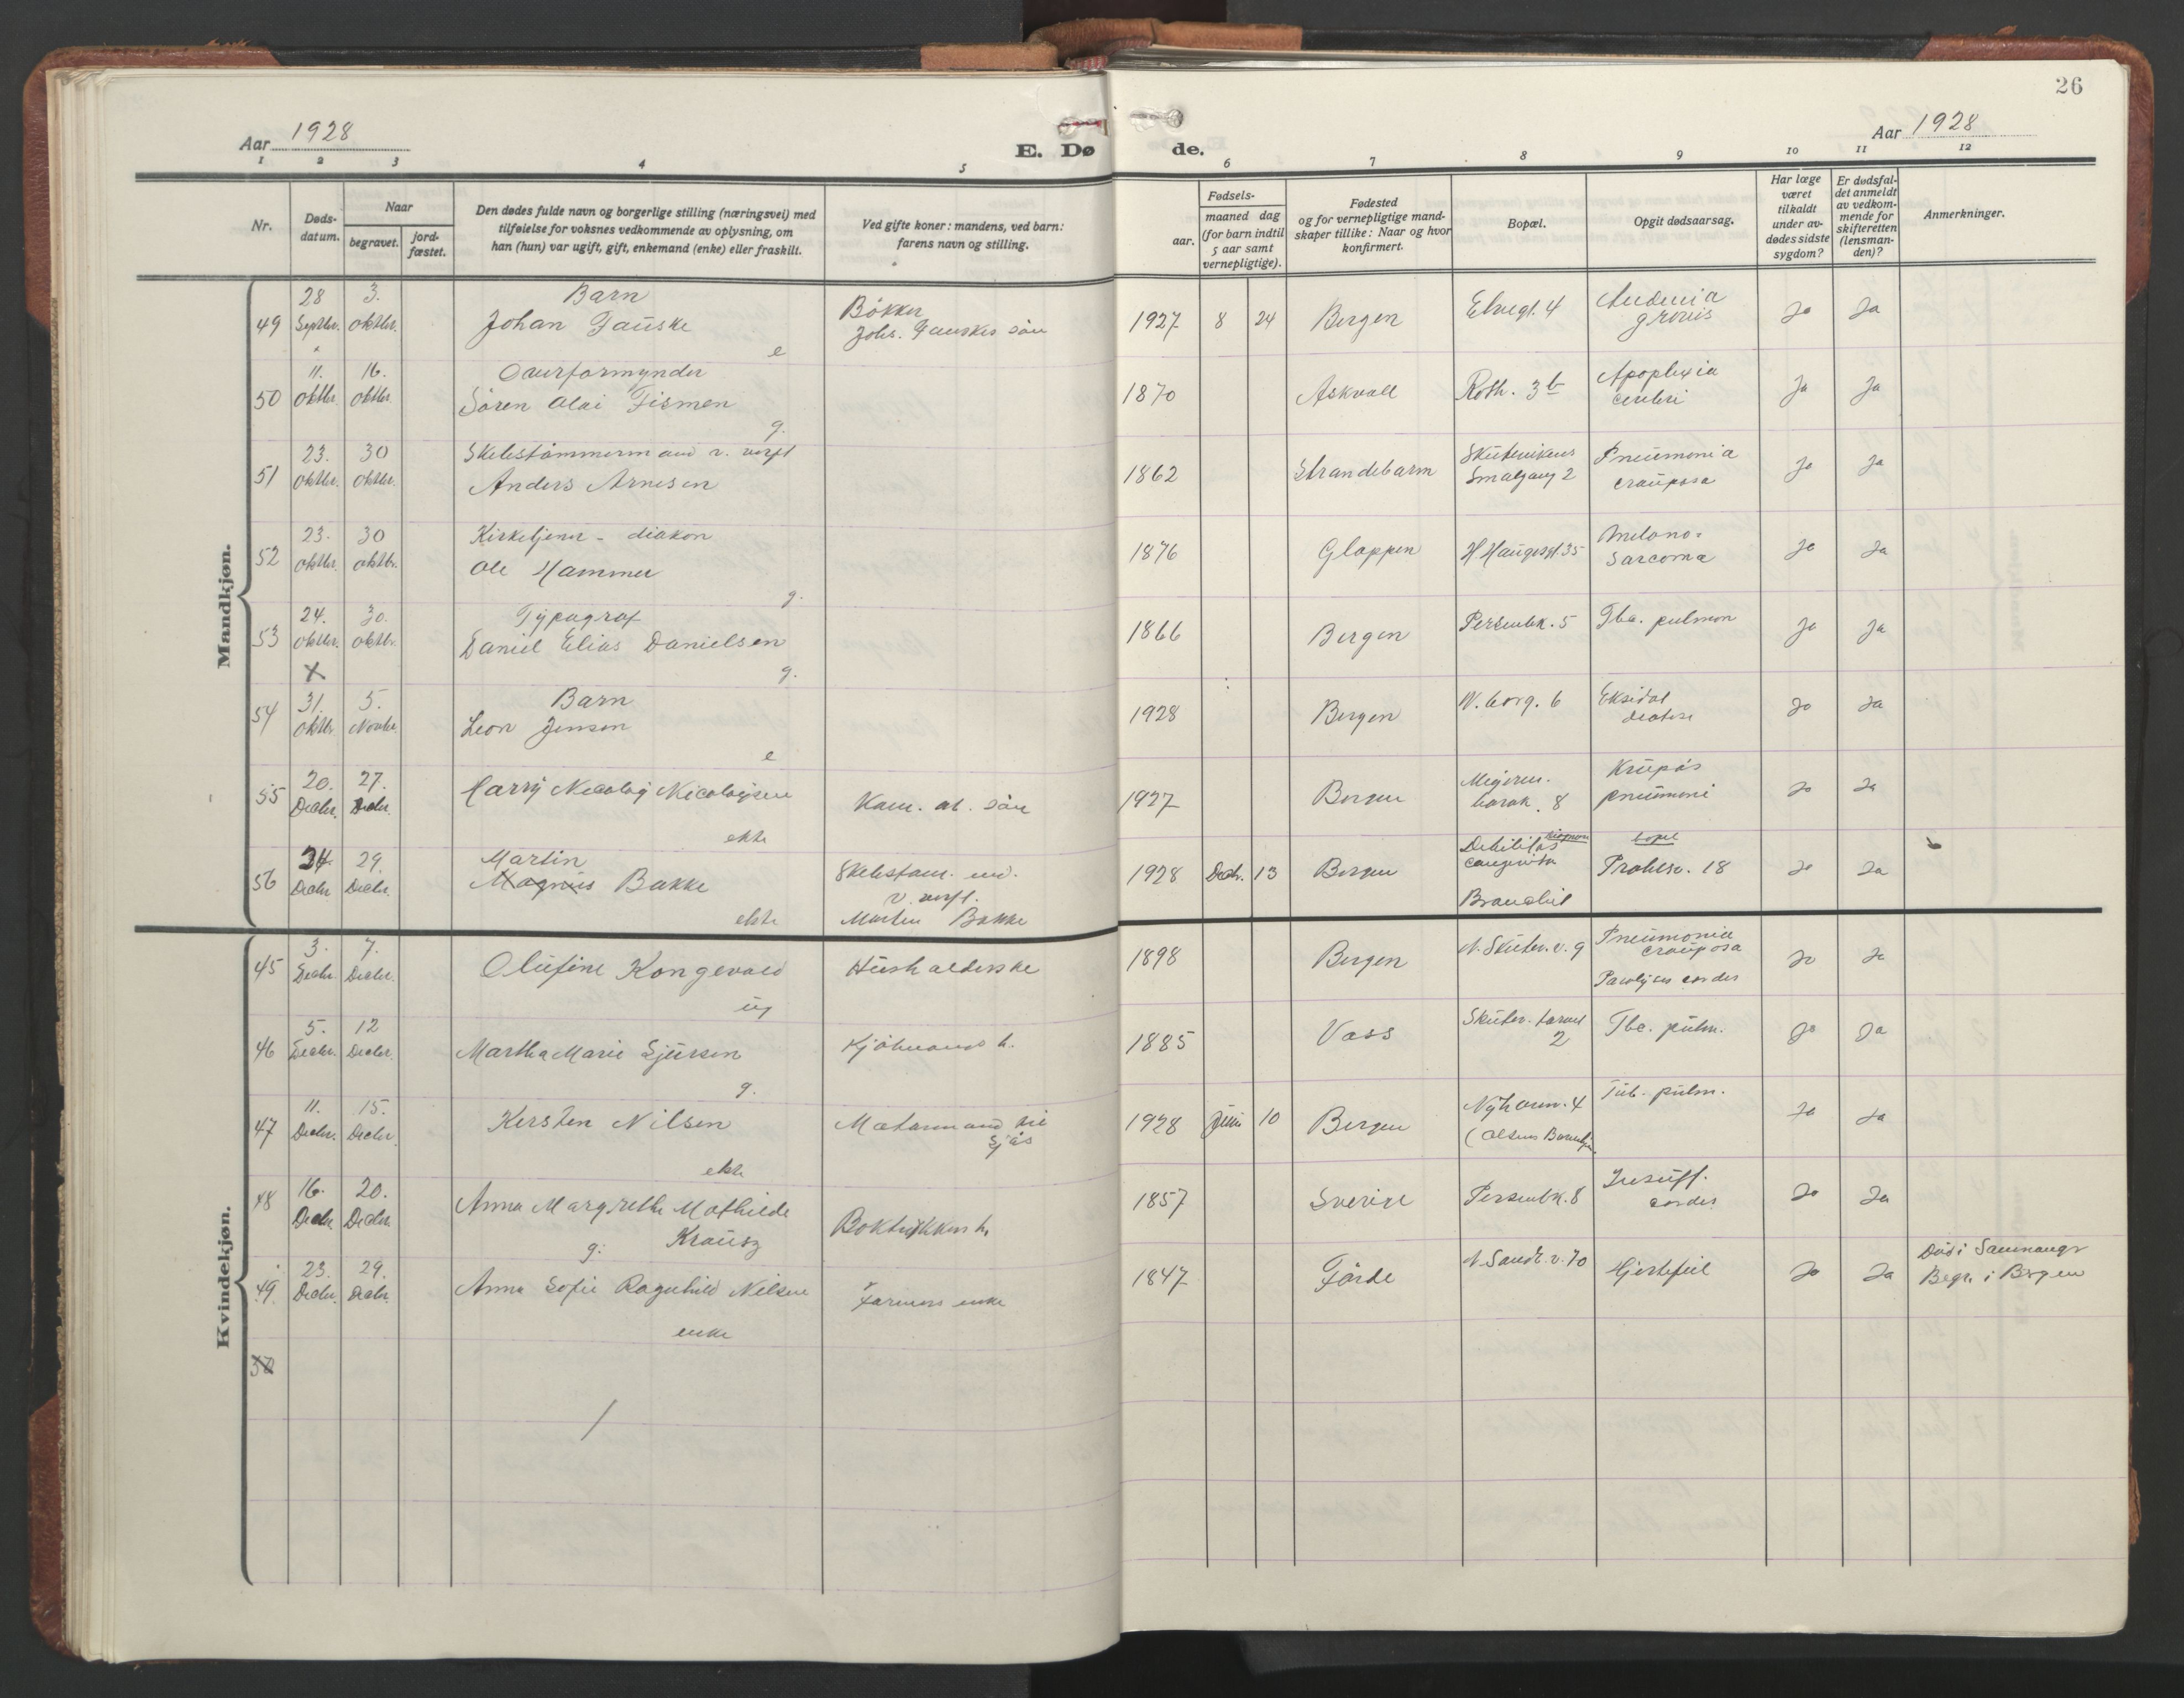 26
Aar 1928
E. Dø
de.
Aar 1928
1 2 3 4 5 6 7 8 9 10 11 12
Nr.
Døds-
datum.
Naar
begravet.
jord-
fæstet.
Den dødes fulde navn og borgerlige stilling (næringsvei) med
tilføielse for voksnes vedkommende av oplysning, om
han (hun) var ugift, gift, enkemand (enke) eller fraskilt.
Ved gifte koner: mandens, ved barn:
farens navn og stilling.
Fødsels-
aar.
maaned dag
(for barn indtil
5 aar samt
vernepligtige).
Fødested
og for vernepligtige mand-
skaper tillike: Naar og hvor
konfirmert.
Bopæl.
Opgit dødsaarsag.
Har læge
været
tilkaldt
under av-
dødes sidste
sygdom?
Er dødsfal-
det anmeldt
av vedkom-
mende for
skifteretten
(lensman-
den)?
Anmerkninger.
Mandkjøn.
49 28 Septbr. 3. oktbr. Barn
Johan Fauske e
Bökker
Johs. Fauskes sön
1927 8 24 Bergen Elvegt. 4 Ja Ja
50 11. oktbr. 16. oktbr. Overformynder
Sören Olai Fismen g.
1870 Askvoll Roth. 3b Apoplexia
cerebri Ja Ja
51 23. oktbr. 30 oktbr. Skibstömmermand v. verft
Anders Arnesen
1862 Strandebarm Skutevikens
Smalgang 2 Pneumonia
crouposa Ja Ja
52 23. oktbr. 30 oktbr. Kirketjener - diakon
Ole Hammer g.
1876 Gloppen H Haugesgt. 35 Melano-
Sarcoma Ja Ja
53 24. oktbr. 30. oktbr. Typograf
Daniel Elias Danielsen g.
1866 Bergen Persenbk. 5 Tbc. pulmon Ja Ja
X
54 31. oktbr. 5. Novbr. Barn
Leon Jenson e
1928 Bergen W. borg. 6 Eksudat
diatese Ja Ja
55 20. Decbr. 27. Decbr. Harry Nicolay Nicolaysen ekte
Kom. arb. sön
1927 Bergen
barak. 8 Krupös
pneumoni Ja Ja
56 24 Decbr. 29. Decbr. Martin
Magnus Bakke ekte
Skibstøm. md.
v. verft.
Martin Bakke
1928 Decbr. 13 Bergen Debilitas
congenita bopel
18 Ja Ja
Kvindekjøn.
45 3. Decbr. 7. Decbr. Olufine Kongevold ug
Husholderske
1898 Bergen N. Skutev. v. 9 Pneumonia
crouposa
Paralyses cordis Ja Ja
46 5. Decbr. 12 Decbr. Martha Marie Sjursen g.
Kjöbmands h.
1885 Voss Skutev. torvet
2 Tbc. pulm. Ja Ja
47 11. Decbr. 15. Decbr. Kersten Nilsen ekte
Matormand
1928 Juni 10 Bergen Nyhavn. 4
Tub. pulm. Ja Ja
48 16. Decbr. 20. Decbr. Anna Margrethe Mathilde
g. Krausz
Boktrykkers h.
1857 Sverige Persenbk. 8 Insuff.
cordis Ja Ja
49 23. Decbr. 29. Decbr. Anna Sofie Ragnhild Nilsen
enke
Farmers enke
1847 Förde N. Sandv. v. 70 Hjertefeil Ja Ja Död i Samnanger
Begr. i Bergen
50